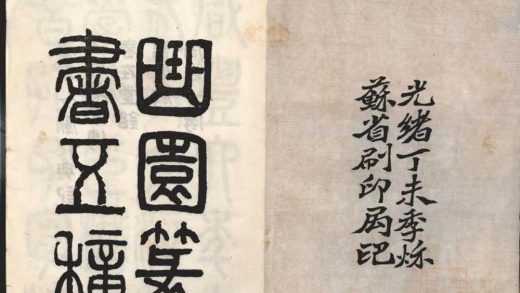 光緒丁未季秋
蘇省刷印局印
曲園篆
書五種